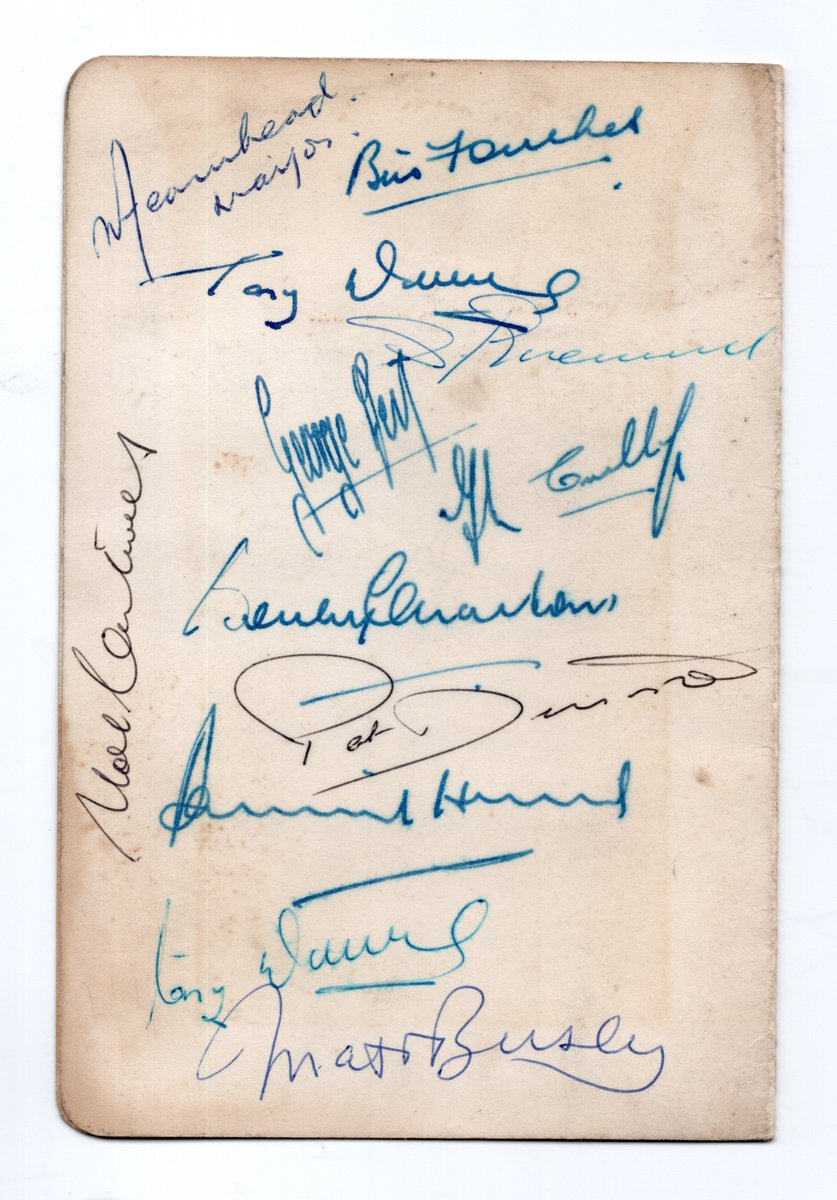 Mayor.
Bill Foulkes
Tony Dunne
George Best
John Connelly
Noel Cantwell
Bobby Charlton
Pat Dunne
David Herd
Tony Dunne
Matt Busby